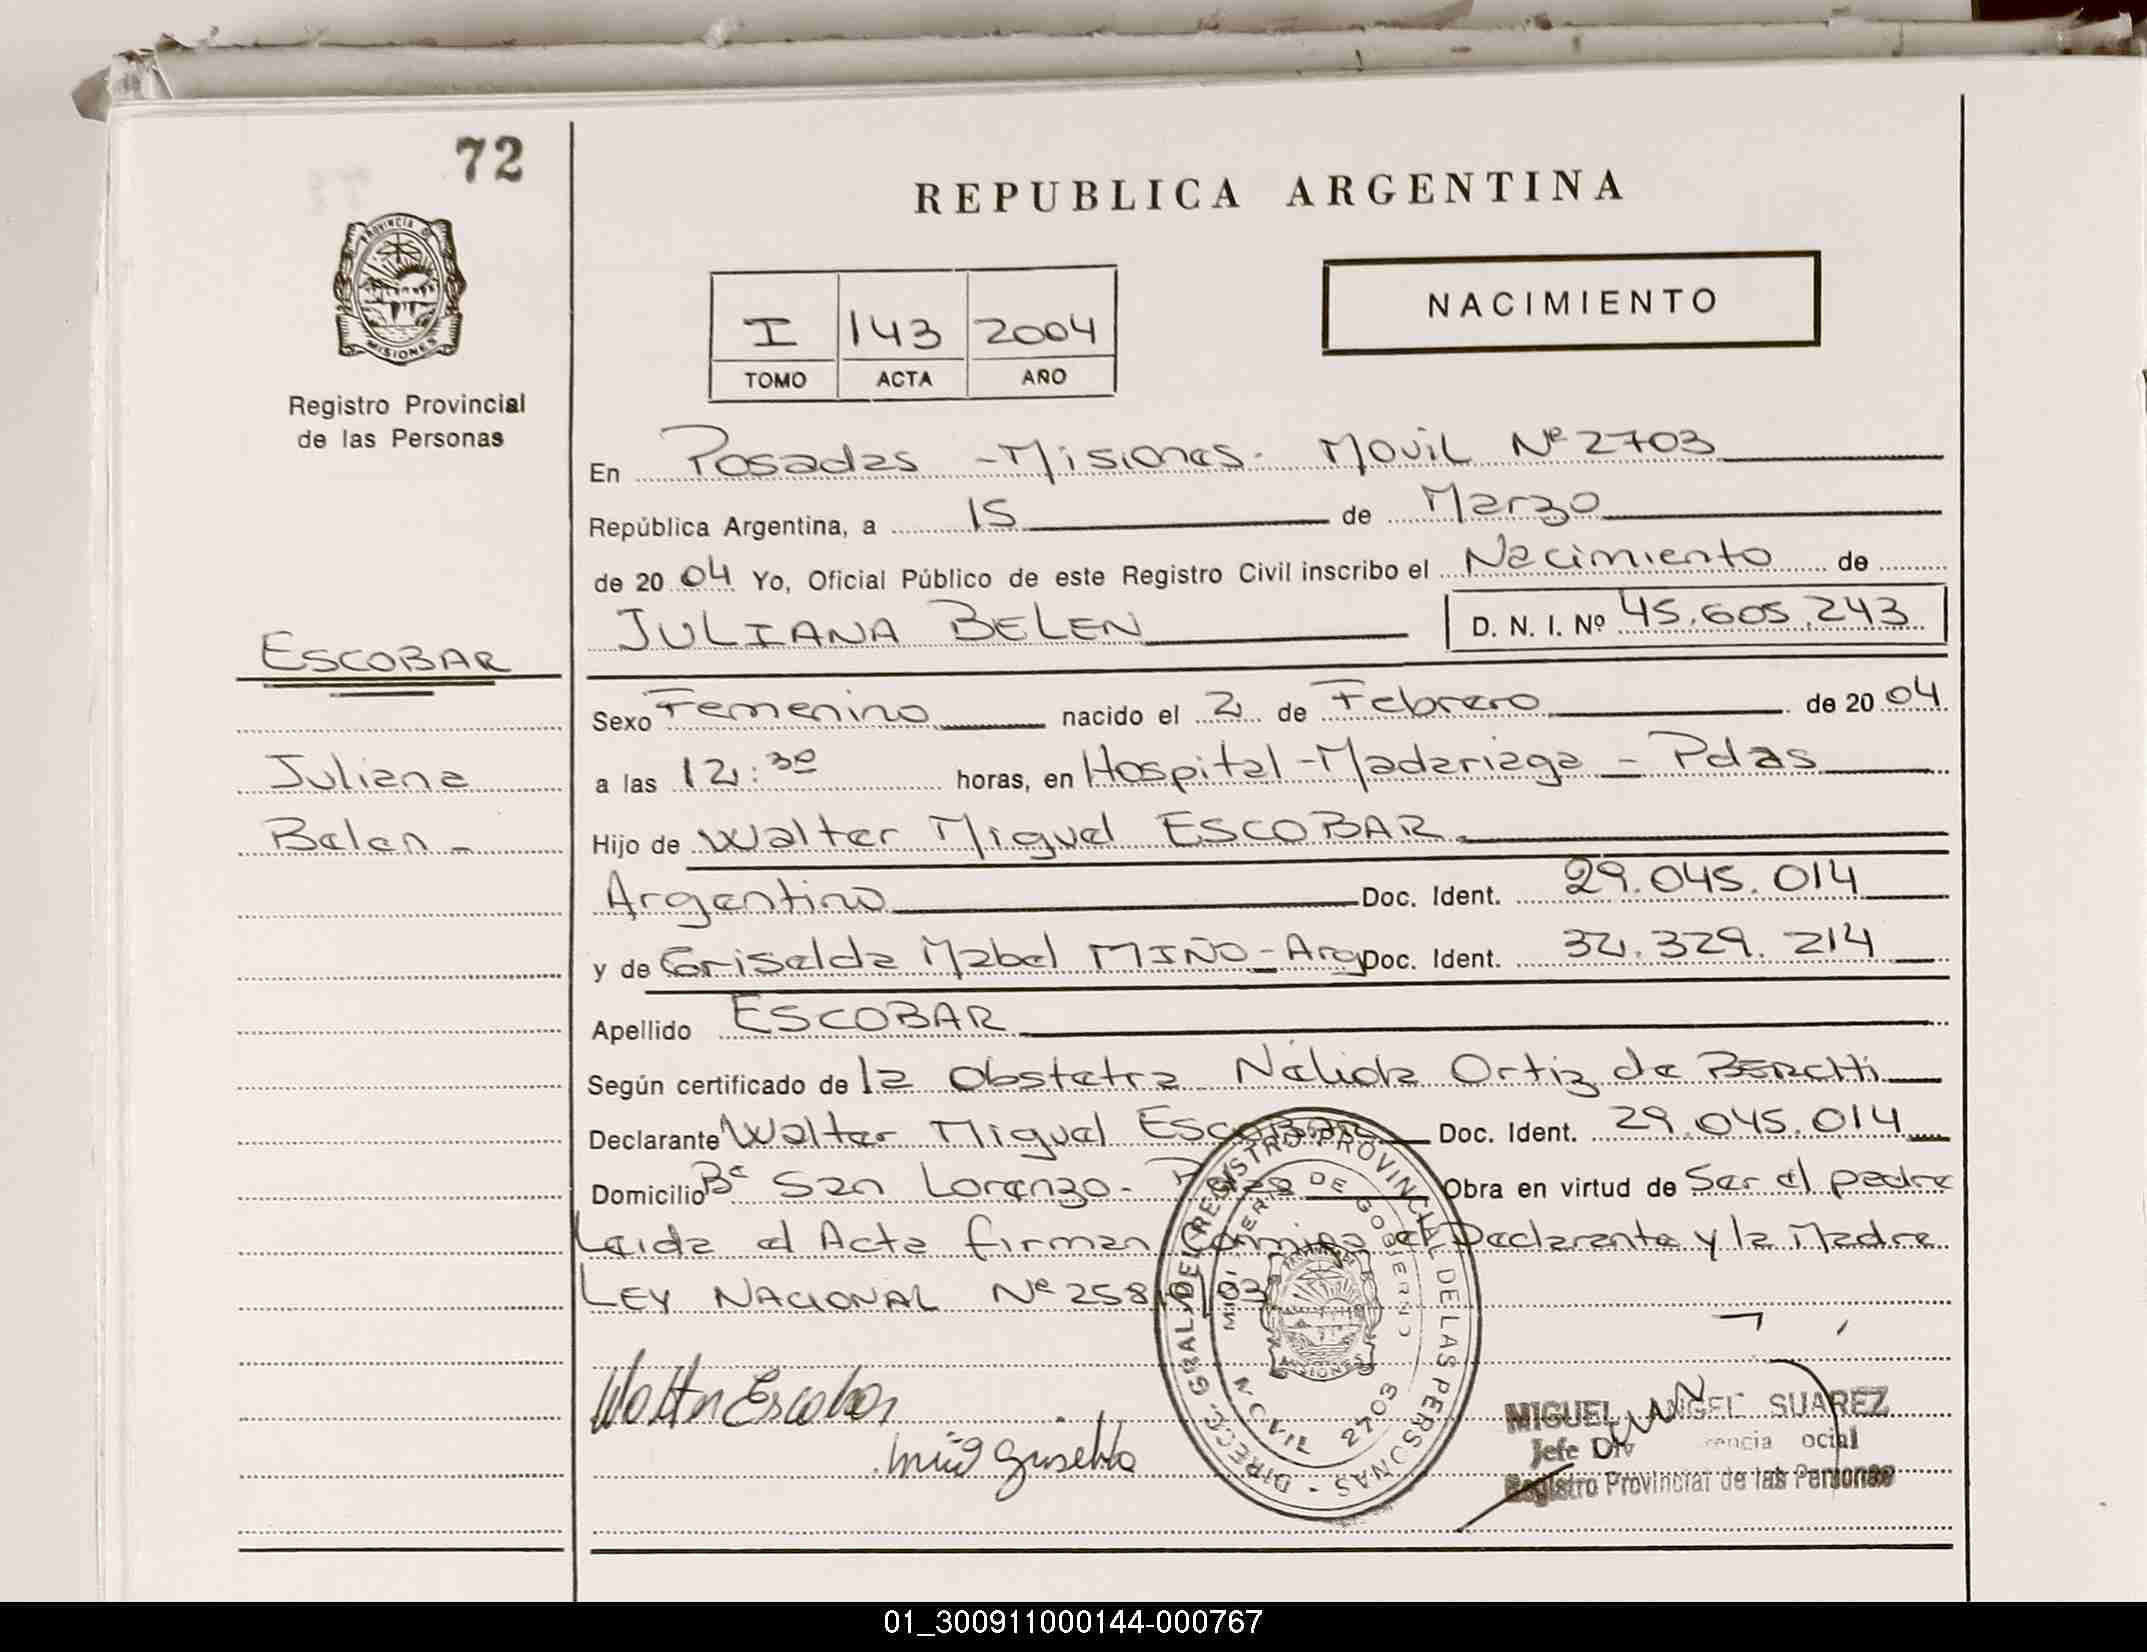 72
REPUBLICA ARGENTINA
PROVINCIA D
MISIONES
Registro Provincial
de las Personas
I 143 2004
TOMO ACTA AÑO
NACIMIENTO
En Posadas - Misiones - Movil Nº 2703
República Argentina, a 15 de Marzo
de 20 04 Yo, Oficial Público de este Registro Civil inscribo el Nacimiento de
JULIANA BELEN D. N. I. Nº 45.605.243
ESCOBAR
Sexo Femenino nacido el 2 de Febrero de 20 04
Juliana
a las 12:30 horas, en Hospital - Madariaga - Pdas
Belen -
Hijo de Walter Miguel ESCOBAR
Argentino Doc. Ident. 29.045.014
y de Griselda Mabel MIÑO - Arg Doc. Ident. 32.329.214
Apellido ESCOBAR
Según certificado de la Obstetra Nélida Ortiz de
Declarante Walter Miguel Escobar Doc. Ident. 29.045.014
Domicilio Bº San Lorenzo - Obra en virtud de Ser el padre
Leida el Acta firman Conmigo el Declarante y la Madre
LEY NACIONAL Nº 03
DIRECC. GRAL. DEL REGISTRO PROVINCIAL DE LAS PERSONAS -
DE GOBIERNO
MISIONES
2703
Walter Escobar
Miño Griselda
MIGUEL ANGEL SUAREZ
Jefe Div
Registro Provincial de las Personas
01_300911000144-000767